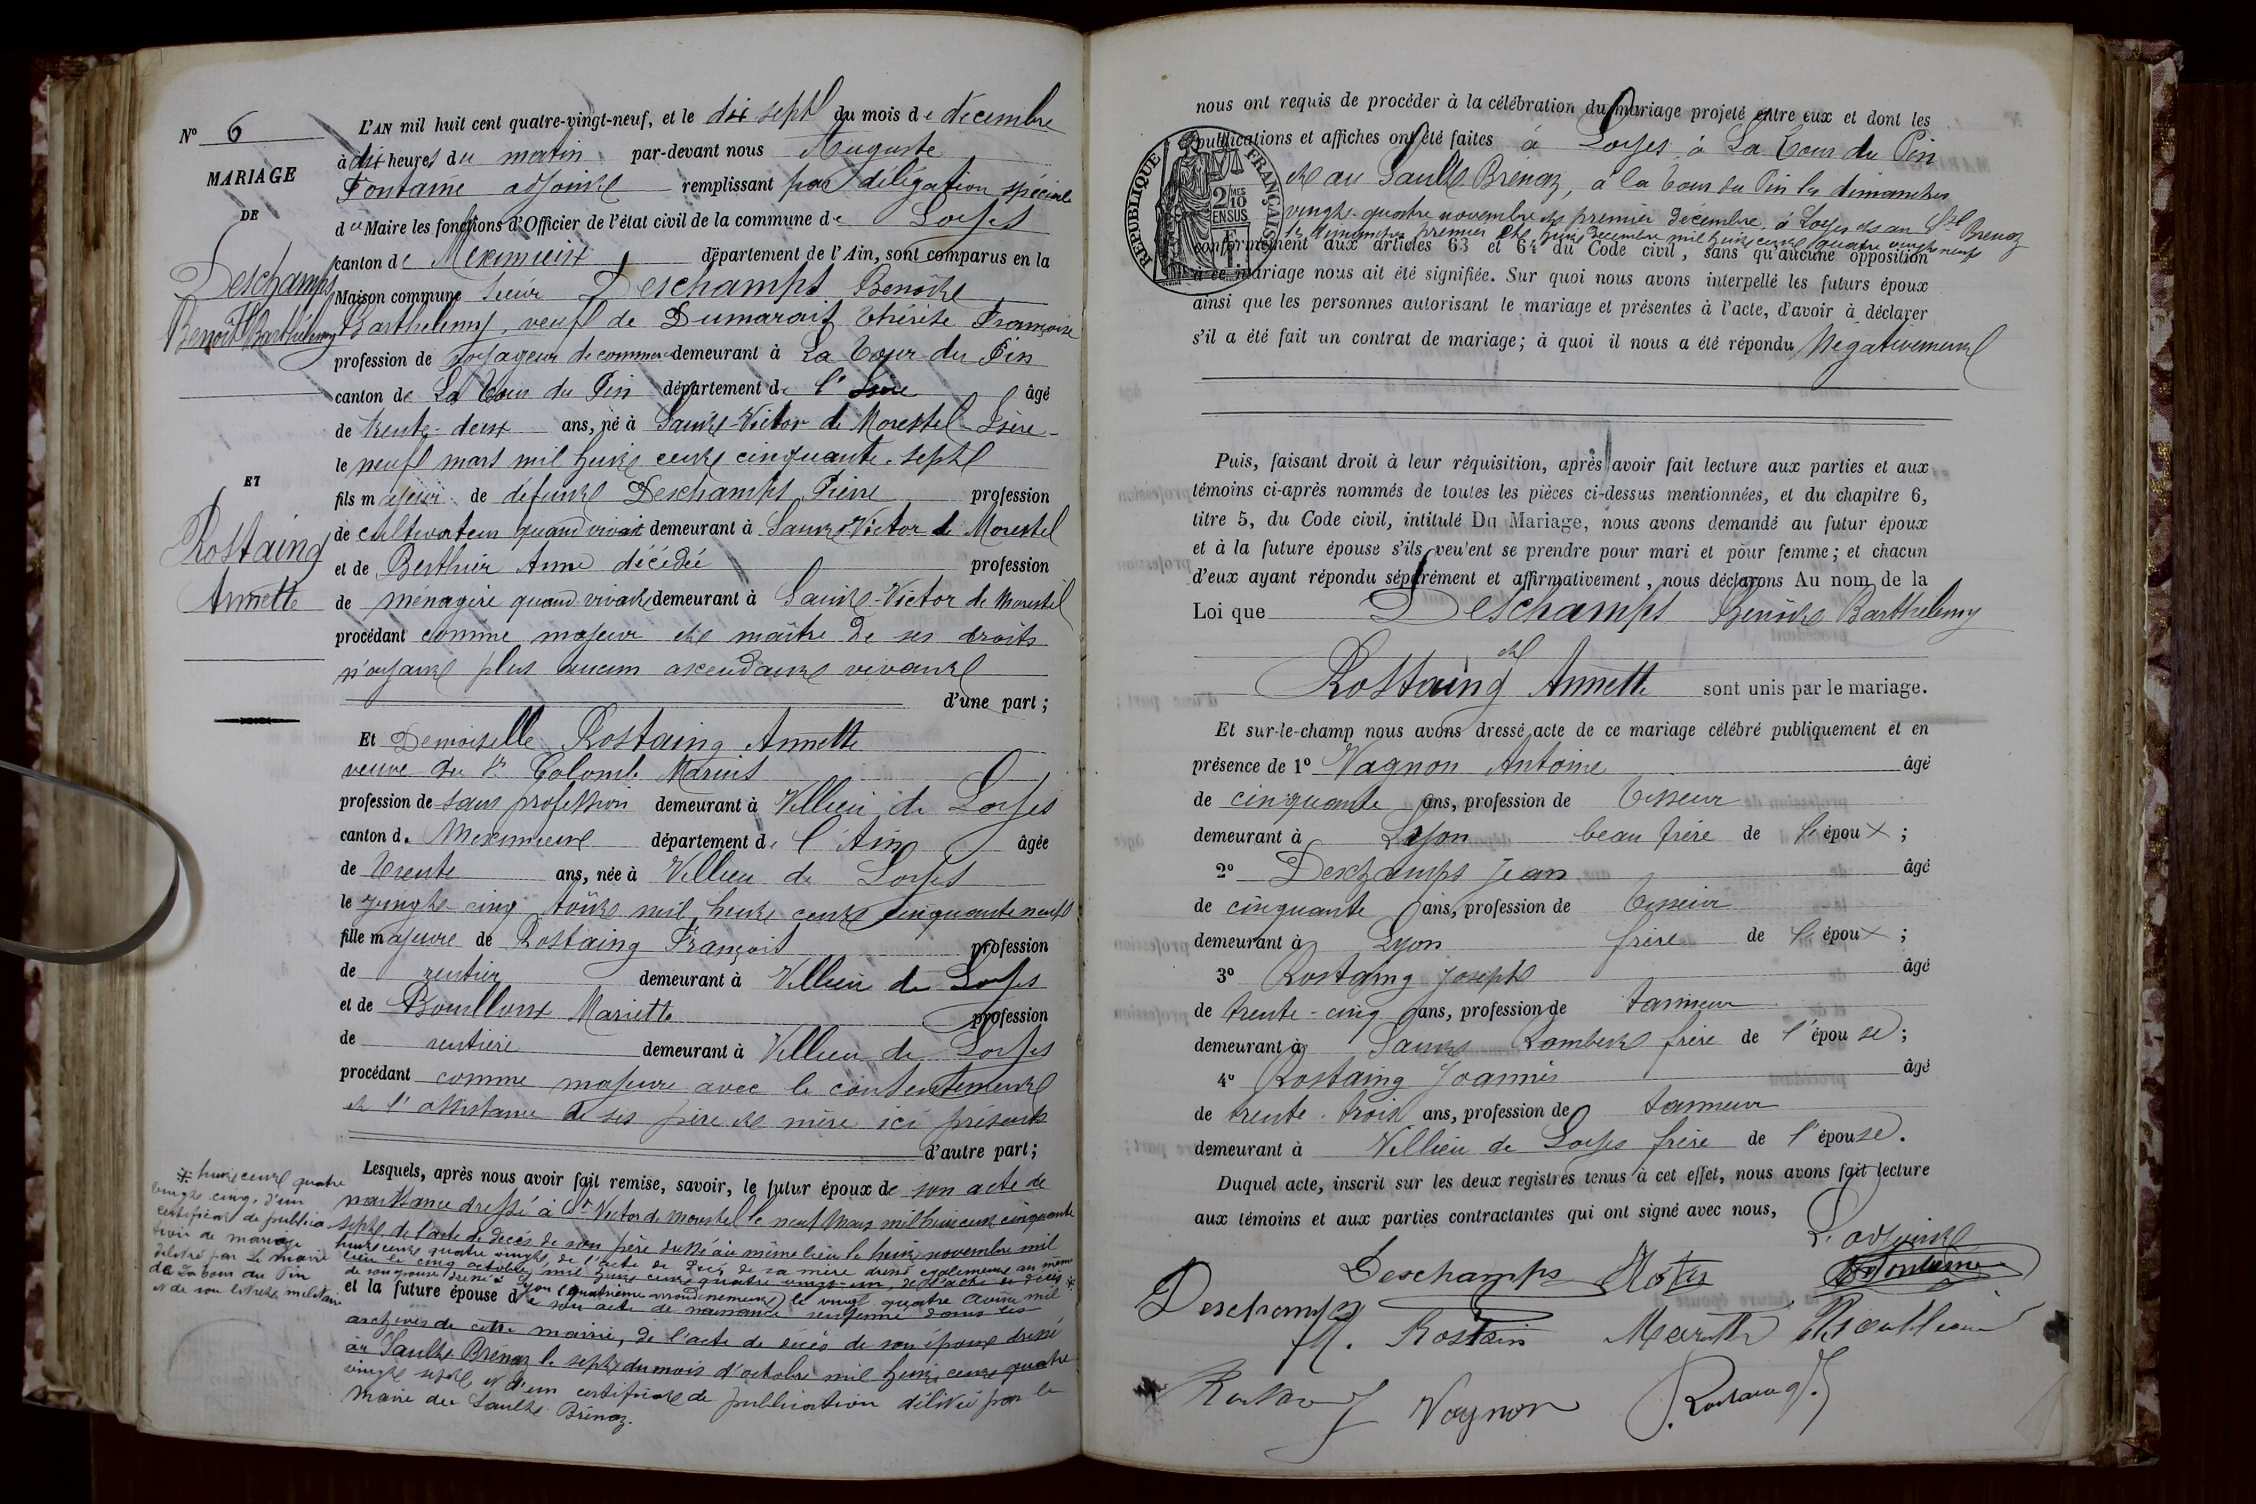 N° 6
MARIAGE
DE
Deschamps
Benoît Barthélemy
ET
Rostaing
Annette
L'AN mil huit cent quatre-vingt-neuf, et le dix sept du mois de décembre
à dix heures du matin par-devant nous Auguste
Fontaine adjoint remplissant par délégation spéciale
du Maire les fonctions d'Officier de l'état civil de la commune de Loyes
canton de Meximieux département de l'Ain, sont comparus en la
Maison commune Sieur Deschamps Benoît
Barthélemy, veuf de Dumarais Thérèse Françoise
profession de voyageur de commerce demeurant à La Tour du Pin
canton de La Tour du Pin département de l'Isère âgé
de trente-deux ans, né à Saint-Victor de Morestel Isère
le neuf mars mil huit cent cinquante-sept
fils majeur de défunt Deschamps Pierre profession
de cultivateur quand vivait demeurant à Saint Victor de Morestel
et de Berthier Anne décédée profession
de ménagère quand vivait demeurant à Saint-Victor de Morestel
procédant comme majeur et maître de ses droits
n'ayant plus aucun ascendant vivant
d'une part;
Et Demoiselle Rostaing Annette
veuve du Sr Colomb Marius
profession de sans profession demeurant à Villieu de Loyes
canton de Meximieux département de l'Ain âgée
de trente ans, née à Villieu de Loyes
le vingt-cinq août mil huit cent cinquante neuf
fille majeure de Rostaing François profession
de rentier demeurant à Villieu de Loyes
et de Bouilloux Mariette profession
de rentière demeurant à Villieu de Loyes
procédant comme majeure avec le consentement
et l'assistance de ses père et mère ici présents
d'autre part;
Lesquels, après nous avoir fait remise, savoir, le futur époux de son acte de
naissance dressé à St Victor de Morestel le neuf mars mil huit cent cinquante
sept, de l'acte de décès de son père dressé au même lieu le huit novembre mil
huit cent quatre vingt, de l'acte de décès de sa mère dressé également au même
lieu le cinq octobre mil huit cent quatre vingt-un, de l'acte de décès
de son épouse dressé à Lyon (quatrième arrondissement) le vingt quatre avril mil *
et la future épouse de son acte de naissance renfermé dans les
archives de cette mairie, de l'acte de décès de son époux dressé
au Sault Brénaz le sept du mois d'octobre mil huit cent quatre
vingt sept et d'un certificat de publication délivré par le
Maire du Sault Brénaz.
* huit cent quatre
vingt cinq, d'un
certificat de publica
tion de mariage
délivré par le maire
de La Tour du Pin
et de son livret militaire
nous ont requis de procéder à la célébration du mariage projeté entre eux et dont les
publications et affiches ont été faites à Loyes, à La Tour du Pin
et au Sault Brénaz, à la Tour du Pin les dimanches
vingt-quatre novembre et premier décembre, à Loyes et au Slt Brénaz
les dimanches premier et huit décembre mil huit cent quatre vingt neuf
conformément aux articles 63 et 64 du Code civil, sans qu'aucune opposition
à ce mariage nous ait été signifiée. Sur quoi nous avons interpellé les futurs époux
ainsi que les personnes autorisant le mariage et présentes à l'acte, d'avoir à déclarer
s'il a été fait un contrat de mariage; à quoi il nous a été répondu Négativement
RÉPUBLIQUE FRANÇAISE
2/10
MES
EN SUS
1F
Puis, faisant droit à leur réquisition, après avoir fait lecture aux parties et aux
témoins ci-après nommés de toutes les pièces ci-dessus mentionnées, et du chapitre 6,
titre 5, du Code civil, intitulé Du Mariage, nous avons demandé au futur époux
et à la future épouse s'ils veulent se prendre pour mari et pour femme; et chacun
d'eux ayant répondu séparément et affirmativement, nous déclarons Au nom de la
Loi que Deschamps Benoît Barthélemy
et
Rostaing Annette sont unis par le mariage.
Et sur-le-champ nous avons dressé acte de ce mariage célébré publiquement et en
présence de 1° Vagnon Antoine âgé
de cinquante ans, profession de tisseur
demeurant à Lyon beau frère de l'époux;
2° Deschamps Jean âgé
de cinquante ans, profession de tisseur
demeurant à Lyon frère de l'époux;
3° Rostaing Joseph âgé
de trente-cinq ans, profession de tanneur
demeurant à Saint Rambert frère de l'épouse;
4° Rostaing Joannès âgé
de trente-trois ans, profession de tanneur
demeurant à Villieu de Loyes frère de l'épouse.
Duquel acte, inscrit sur les deux registres tenus à cet effet, nous avons fait lecture
aux témoins et aux parties contractantes qui ont signé avec nous,
L'adjoint
Deschamps
Fontaine
Deschamps
Rostain Mariette Bouilloux
Vagnon Rostaing J.